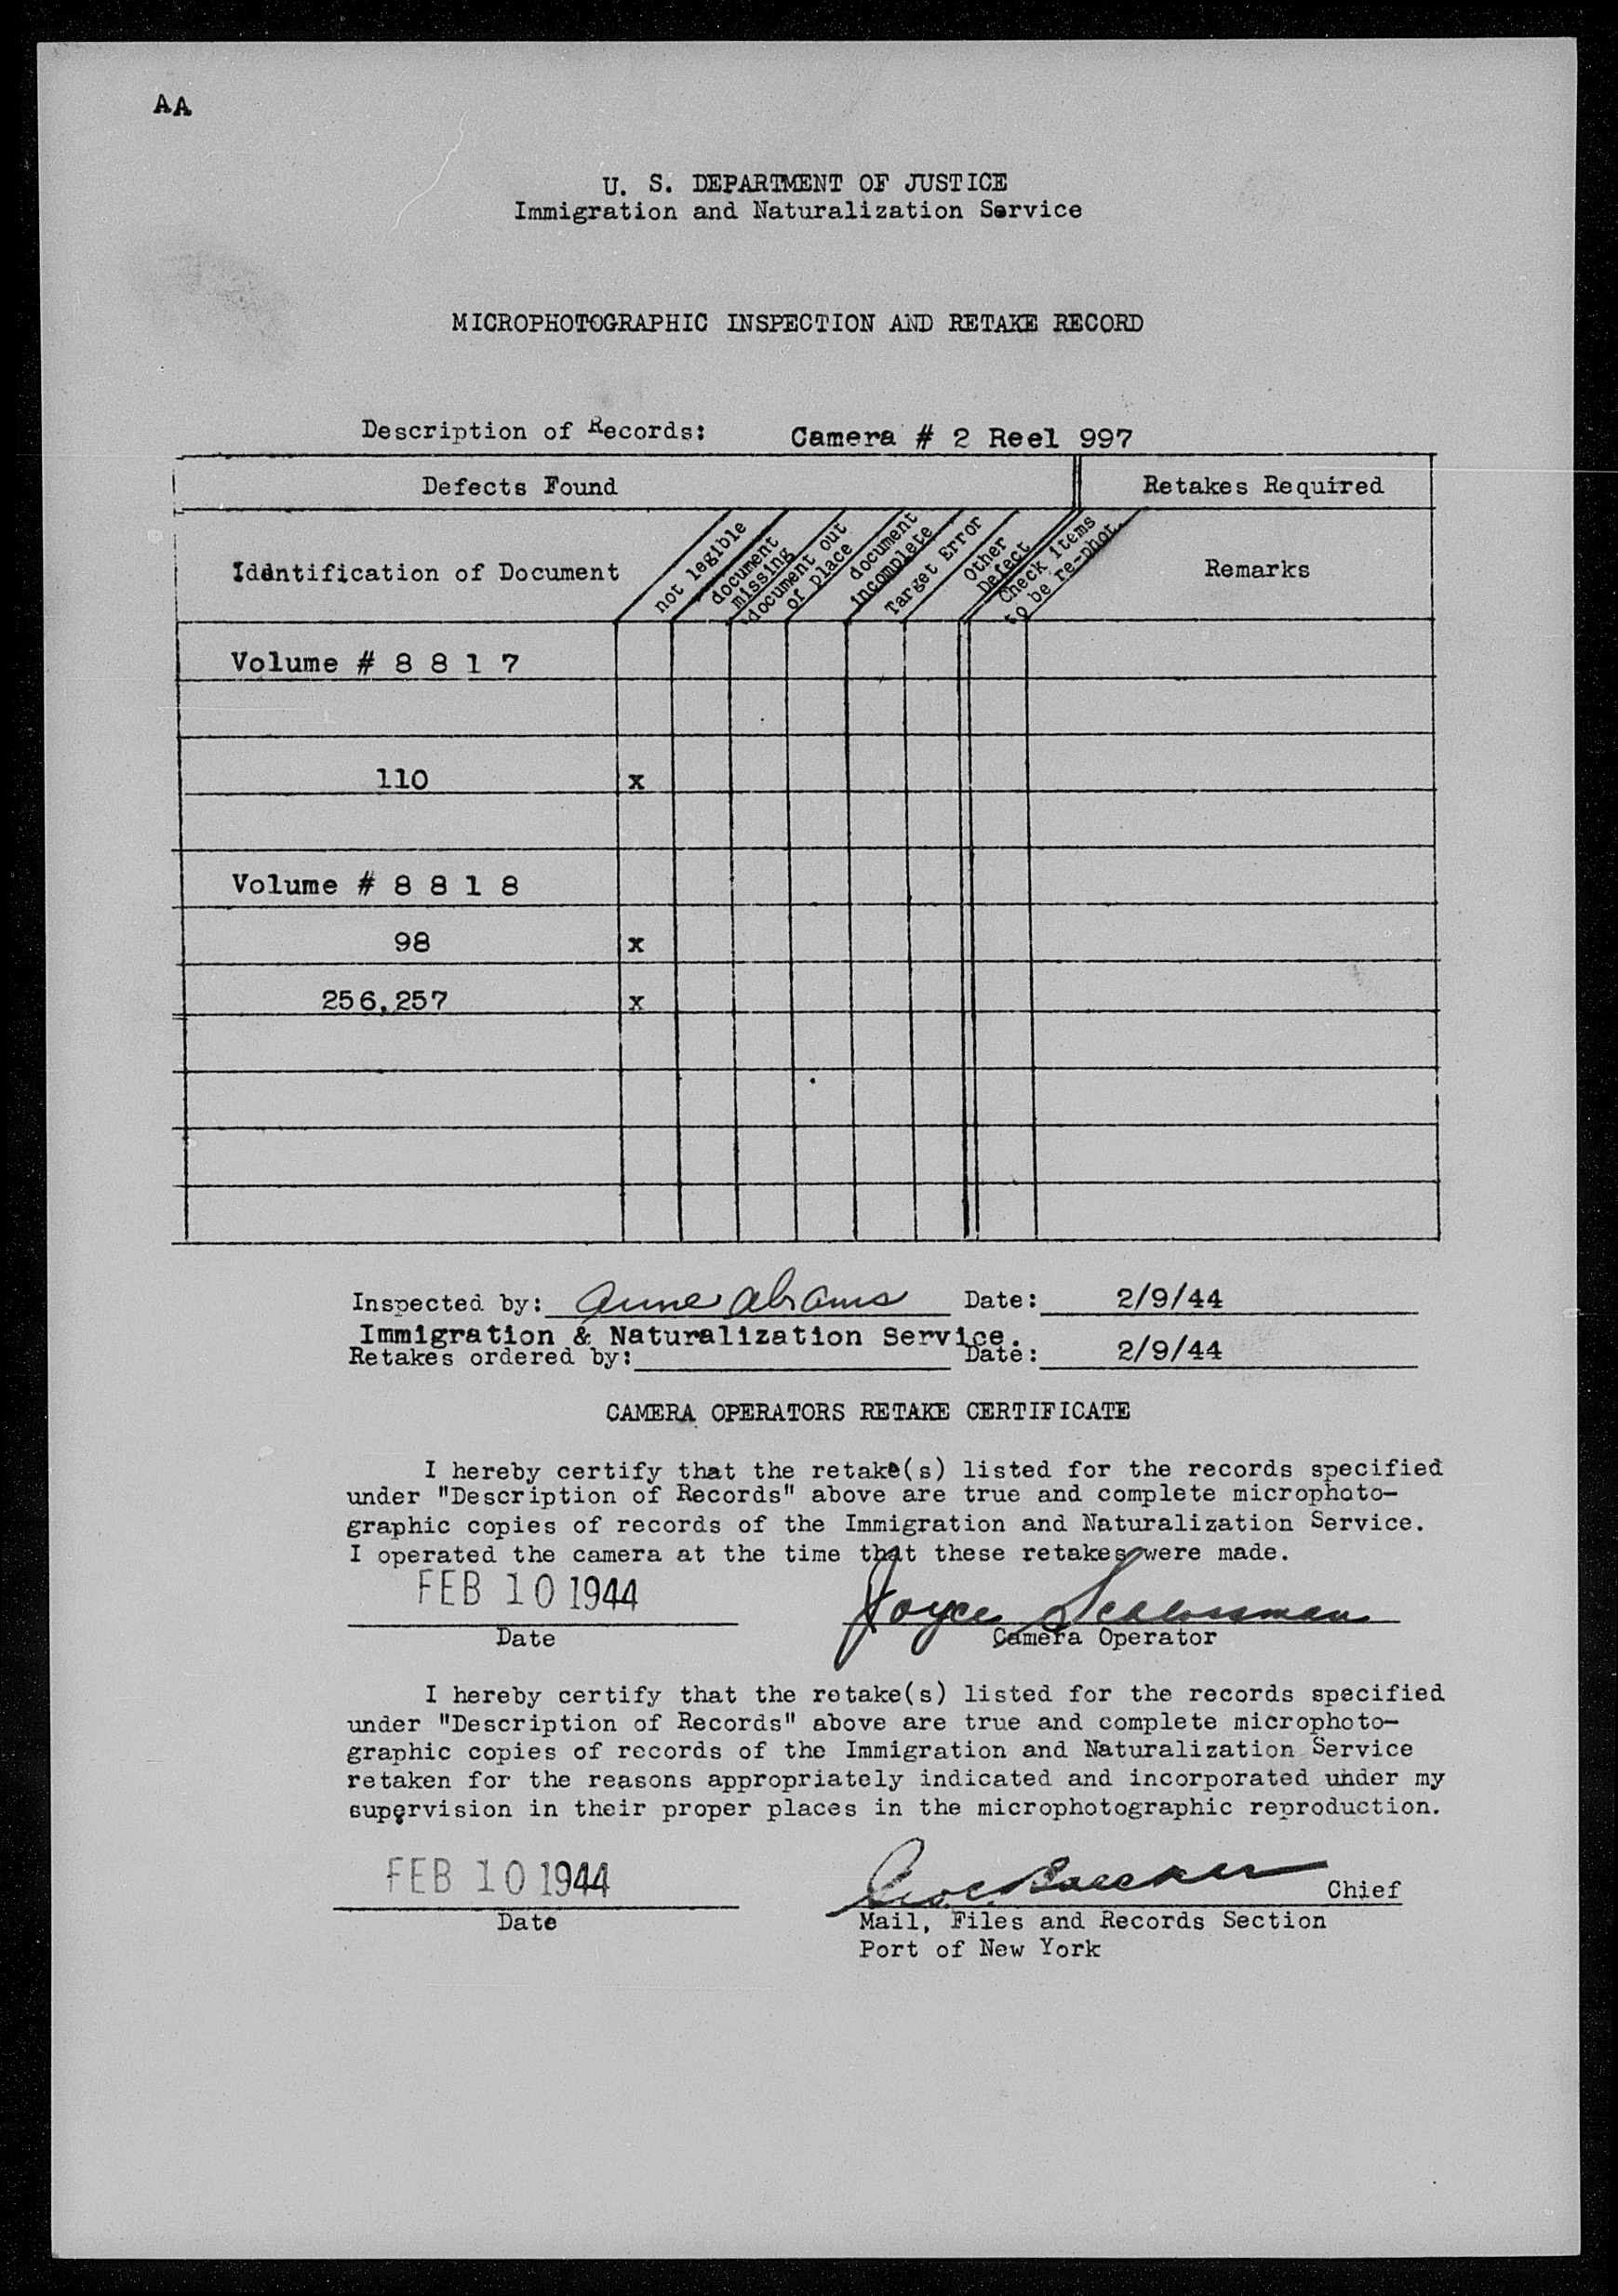 AA
U. S. DEPARTMENT OF JUSTICE
Immigration and Naturalization Service
MICROPHOTOGRAPHIC INSPECTION AND RETAKE RECORD
Description of Records: Camera # 2 Reel 997
Defects Found Retakes Required
Identification of Document
not legible
document
missing
document out
of place
document
incomplete
Target Error
Other
Defect
Check items
to be re-phot.
Remarks
Volume # 8 8 1 7
110 x
Volume # 8 8 1 8
98 x
256,257 x
Inspected by: Anne Abrams Date: 2/9/44
Immigration & Naturalization Service.
Retakes ordered by: Date: 2/9/44
CAMERA OPERATORS RETAKE CERTIFICATE
I hereby certify that the retake(s) listed for the records specified
under "Description of Records" above are true and complete microphoto-
graphic copies of records of the Immigration and Naturalization Service.
I operated the camera at the time that these retakes were made.
FEB 10 1944 Joyce Schlossman
Date Camera Operator
I hereby certify that the retake(s) listed for the records specified
under "Description of Records" above are true and complete microphoto-
graphic copies of records of the Immigration and Naturalization Service
retaken for the reasons appropriately indicated and incorporated under my
supervision in their proper places in the microphotographic reproduction.
FEB 10 1944 Chief
Date Mail, Files and Records Section
Port of New York